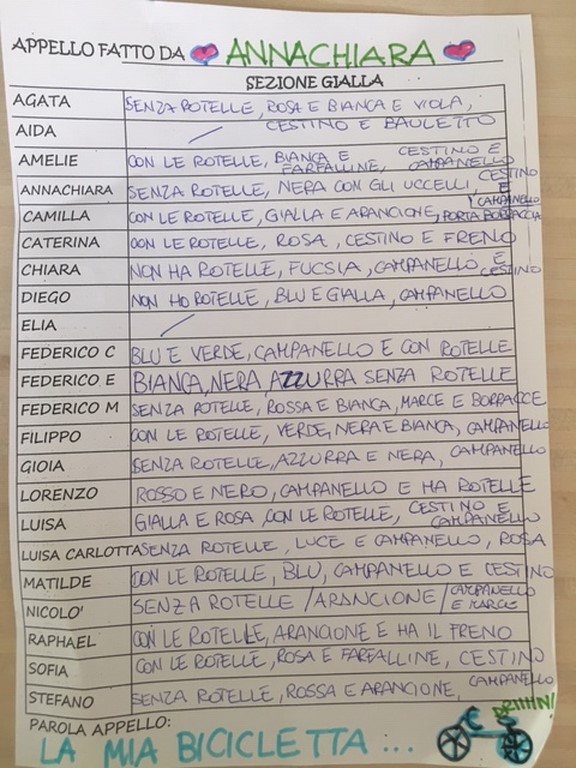 APPELLO FATTO DA ANNACHIARA
SEZIONE GIALLA
AGATA SENZA ROTELLE, ROSA E BIANCA E VIOLA, CESTINO E BAULETTO
AIDA
AMELIE CON LE ROTELLE, BIANCA E FARFALLINE, CESTINO E CAMPANELLO
ANNACHIARA SENZA ROTELLE, NERA CON GLI UCCELLI, CESTINO E CAMPANELLO
CAMILLA CON LE ROTELLE, GIALLA E ARANCIONE, PORTA BORRACCIA
CATERINA CON LE ROTELLE, ROSA, CESTINO E FRENO
CHIARA NON HA ROTELLE, FUCSIA, CAMPANELLO E CESTINO
DIEGO NON HO ROTELLE, BLU E GIALLA, CAMPANELLO
ELIA
FEDERICO C BLU E VERDE, CAMPANELLO E CON ROTELLE
FEDERICO E BIANCA, NERA AZZURRA SENZA ROTELLE
FEDERICO M SENZA ROTELLE, ROSSA E BIANCA, MARCE E BORRACCE
FILIPPO CON LE ROTELLE, VERDE, NERA E BIANCA, CAMPANELLO
GIOIA SENZA ROTELLE, AZZURRA E NERA, CAMPANELLO
LORENZO ROSSO E NERO, CAMPANELLO E HA ROTELLE
LUISA GIALLA E ROSA, CON LE ROTELLE, CESTINO E CAMPANELLO
LUISA CARLOTTA SENZA ROTELLE, LUCE E CAMPANELLO, ROSA
MATILDE CON LE ROTELLE, BLU, CAMPANELLO E CESTINO
NICOLO' SENZA ROTELLE / ARANCIONE / CAMPANELLO E MARCE
RAPHAEL CON LE ROTELLE, ARANCIONE E HA IL FRENO
SOFIA CON LE ROTELLE, ROSA E FARFALLINE, CESTINO
STEFANO SENZA ROTELLE, ROSSA E ARANCIONE, CAMPANELLO
PAROLA APPELLO:
DRIIIIN!
LA MIA BICICLETTA...